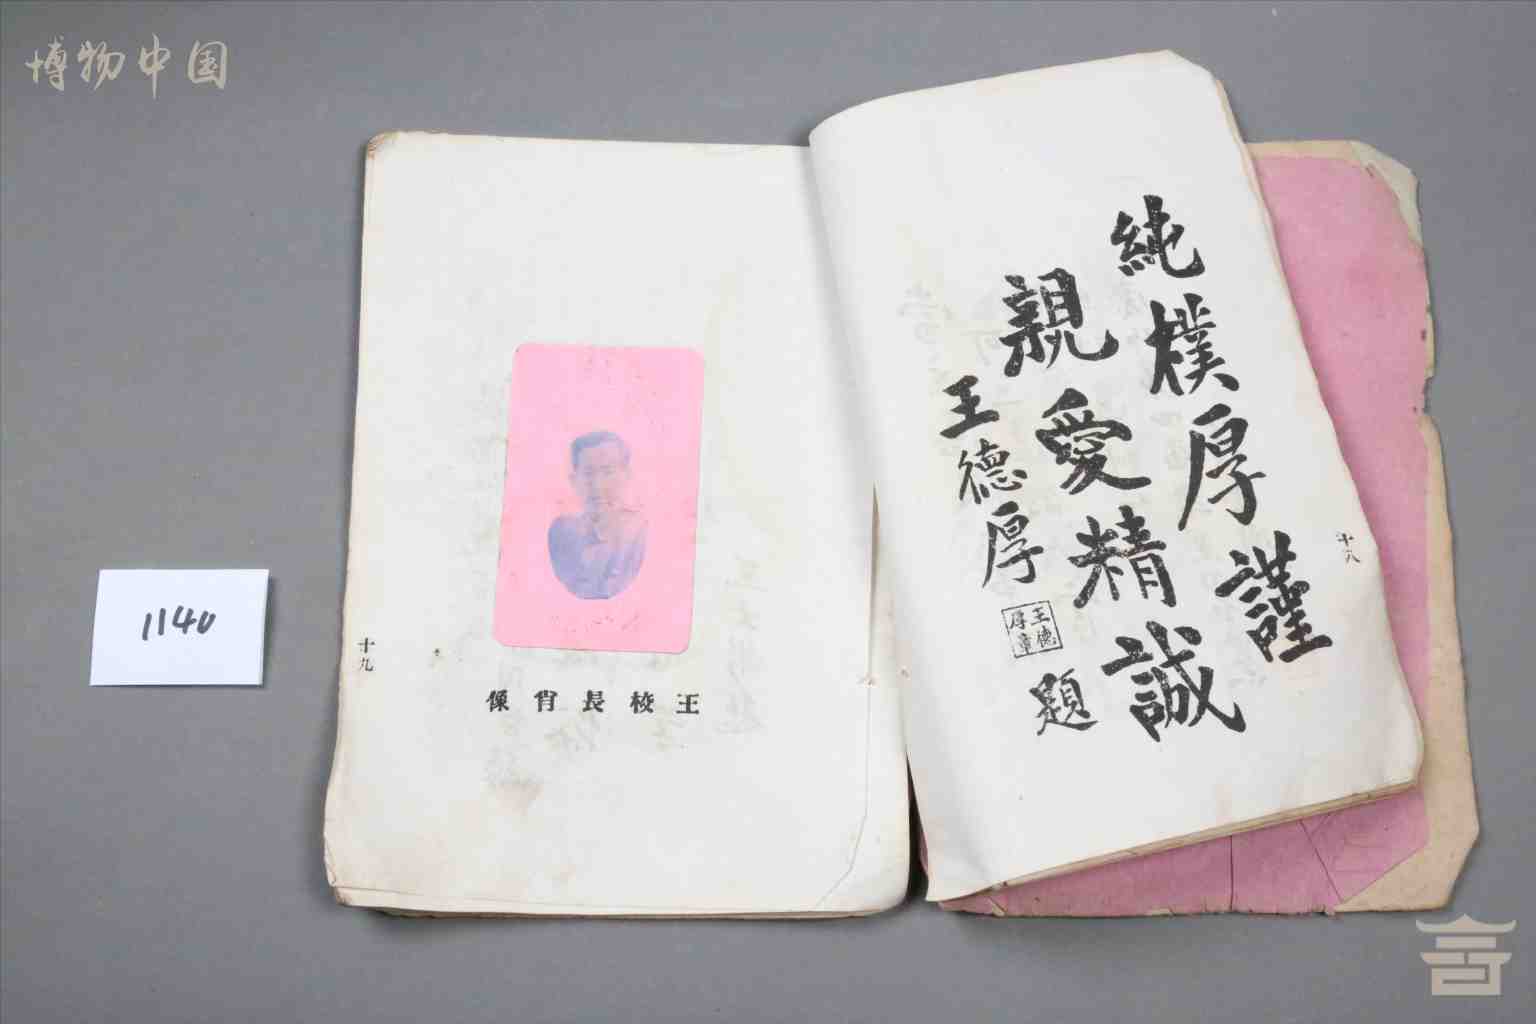 博物中国
純樸厚謹
親愛精誠
王德厚
王德
厚章
題
十八
王校長肖像
十九
1140